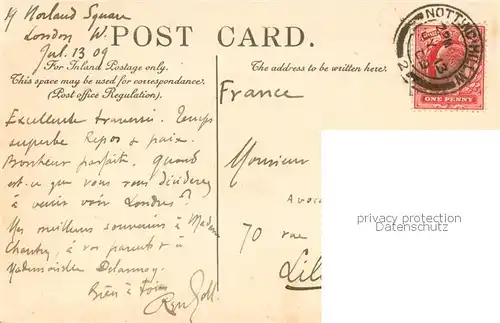 19 Norland Square
London W.
Jul. 13 09
POST CARD.
For Inland Postage only.
This space may be used for correspondence.
(Post office Regulation).
The address to be written here.
NOTTING HILL W
ONE PENNY
France
Excellente traversée. Temps
superbe Repos & paix.
Bonheur parfait. Quand
est-ce que vous vous déciderez
à venir voir Londres?
Mes meilleurs souvenirs à Madame
à vos parents & à
Mademoiselle Delannoy.
Bien à toi
Monsieur
Avoca
70 rue
Lil
privacy protection
Datenschutz